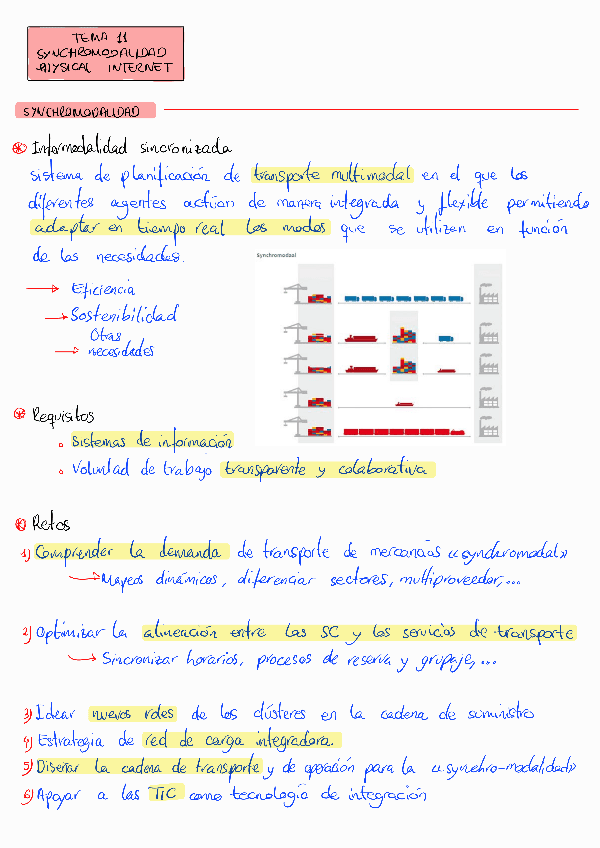 TEMA 11
SYNCHROMODALIDAD
PHYSICAL INTERNET
SYNCHROMODALIDAD
Intermodalidad sincronizada
sistema de planificación de transporte multimodal en el que los
diferentes agentes actúan de manera integrada y flexible permitiendo
adaptar en tiempo real los modos que se utilizen en función
de las necesidades.
Synchromodaal
→ Eficiencia
→ Sostenibilidad
Otras
→ necesidades
Requisitos
Sistemas de información
Voluntad de trabajo transparente y colaborativa
Retos
1) Comprender la demanda de transporte de mercancías «synchromodal»
→ Mapeos dinámicos, diferenciar sectores, multiproveedor,...
2) Optimizar la alineación entre las SC y los servicios de transporte
→ Sincronizar horarios, procesos de reserva y grupaje,...
3) Idear nuevos roles de los clústeres en la cadena de suministro
4) Estrategia de red de carga integradora.
5) Diseñar la cadena de transporte y de operación para la «synchro-modalidad»
6) Apoyar a las TIC como tecnología de integración